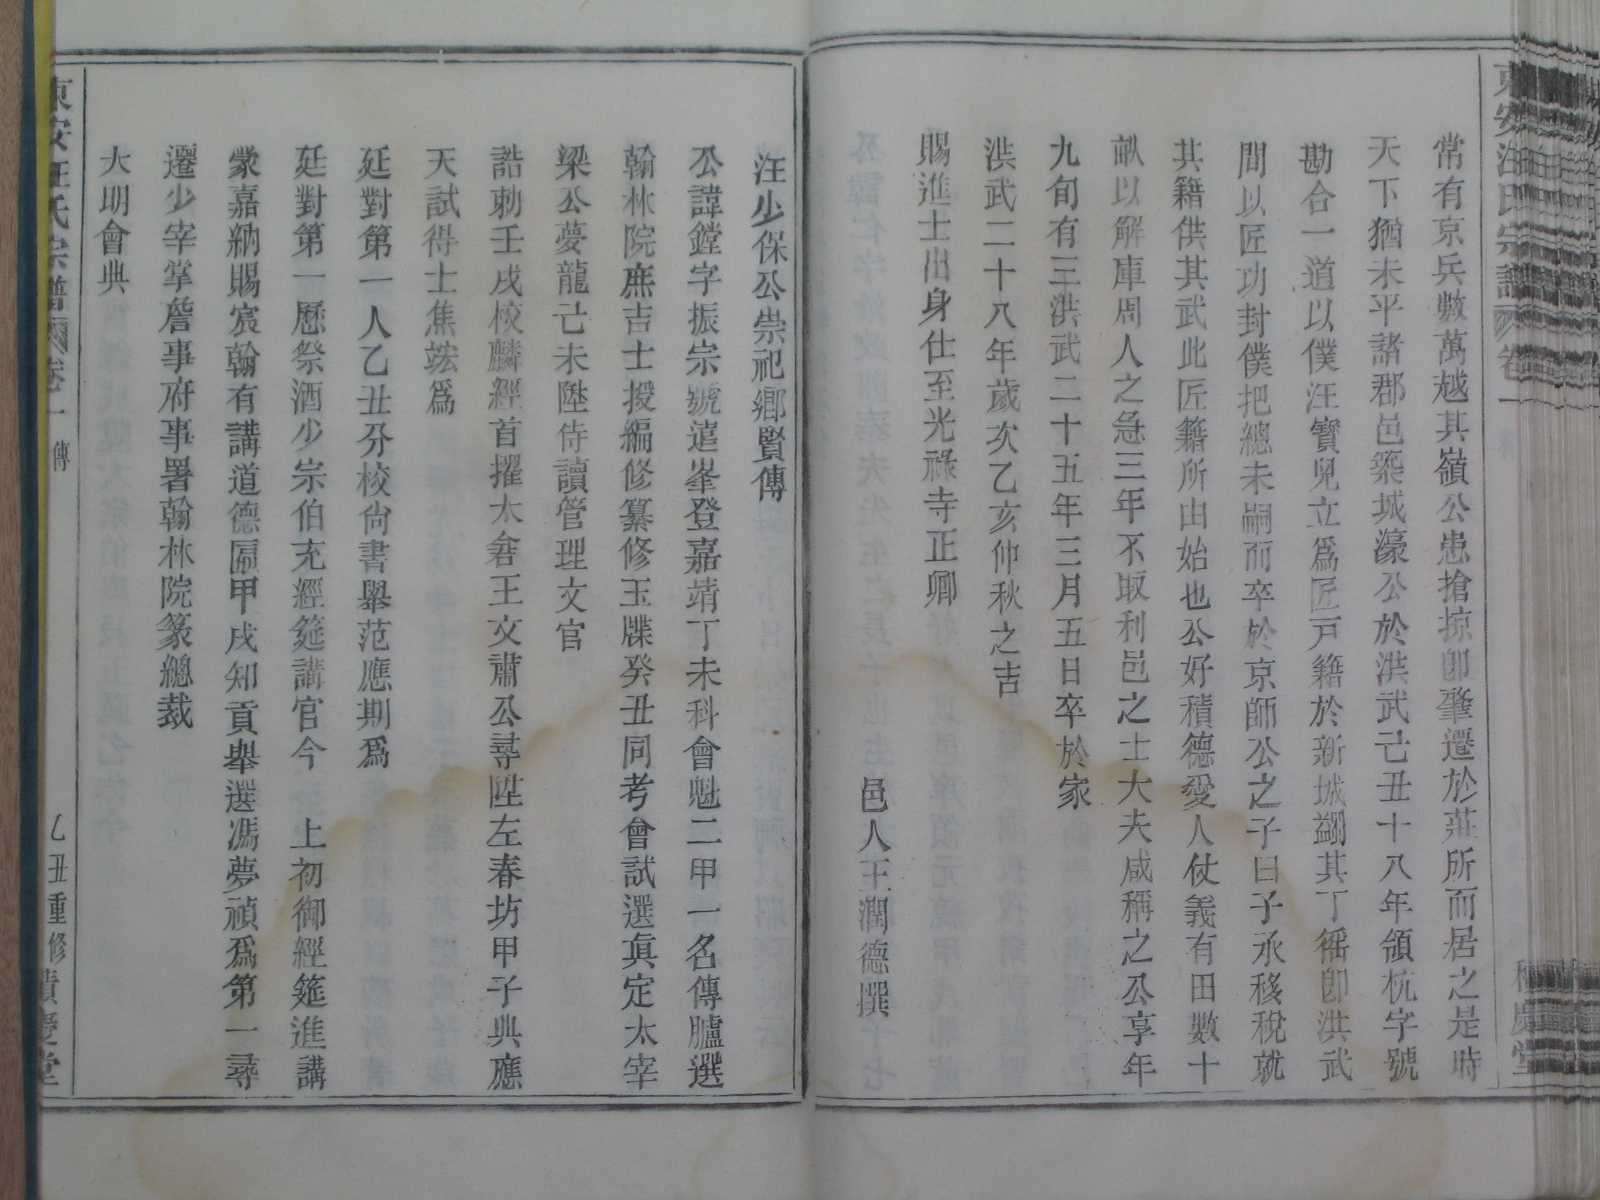 常有京兵數萬越其嶺公患搶掠卽肇遷於莊所而居之是時
天下猶未平諸郡邑築城濠公於洪武己丑十八年領杭字號
勘合一道以僕汪寶兒立爲匠戸籍於新城蠲其丁徭卽洪武
間以匠功封僕把總未嗣而卒於京師公之子曰子承移稅就
其籍供其武此匠籍所由始也公好積德愛人仗義有田數十
畝以解庫周人之急三年不取利邑之士大夫咸稱之公享年
九旬有三洪武二十五年三月五日卒於家
洪武二十八年歲次乙亥仲秋之吉
賜進士出身仕至光祿寺正卿
邑人王潤德撰
東安汪氏宗譜 卷一
積慶堂
汪少保公崇祀鄉賢傳
公諱鏜字振宗號遠峯登嘉靖丁未科會魁二甲一名傳臚選
翰林院庶吉士授編修纂修玉牒癸丑同考會試選眞定太宰
梁公夢龍己未陞侍讀管理文官
誥勅壬戌校麟經首擢太倉王文肅公尋陞左春坊甲子典應
天試得士焦竑爲
廷對第一人乙丑分校尙書舉范應期爲
廷對第一歷祭酒少宗伯充經筵講官今 上初御經筵進講
蒙嘉納賜宸翰有講道德匾甲戌知貢舉選馮夢禎爲第一尋
遷少宰掌詹事府事署翰林院篆總裁
大明會典
東安汪氏宗譜 卷一 傳
乙丑重修 積慶堂